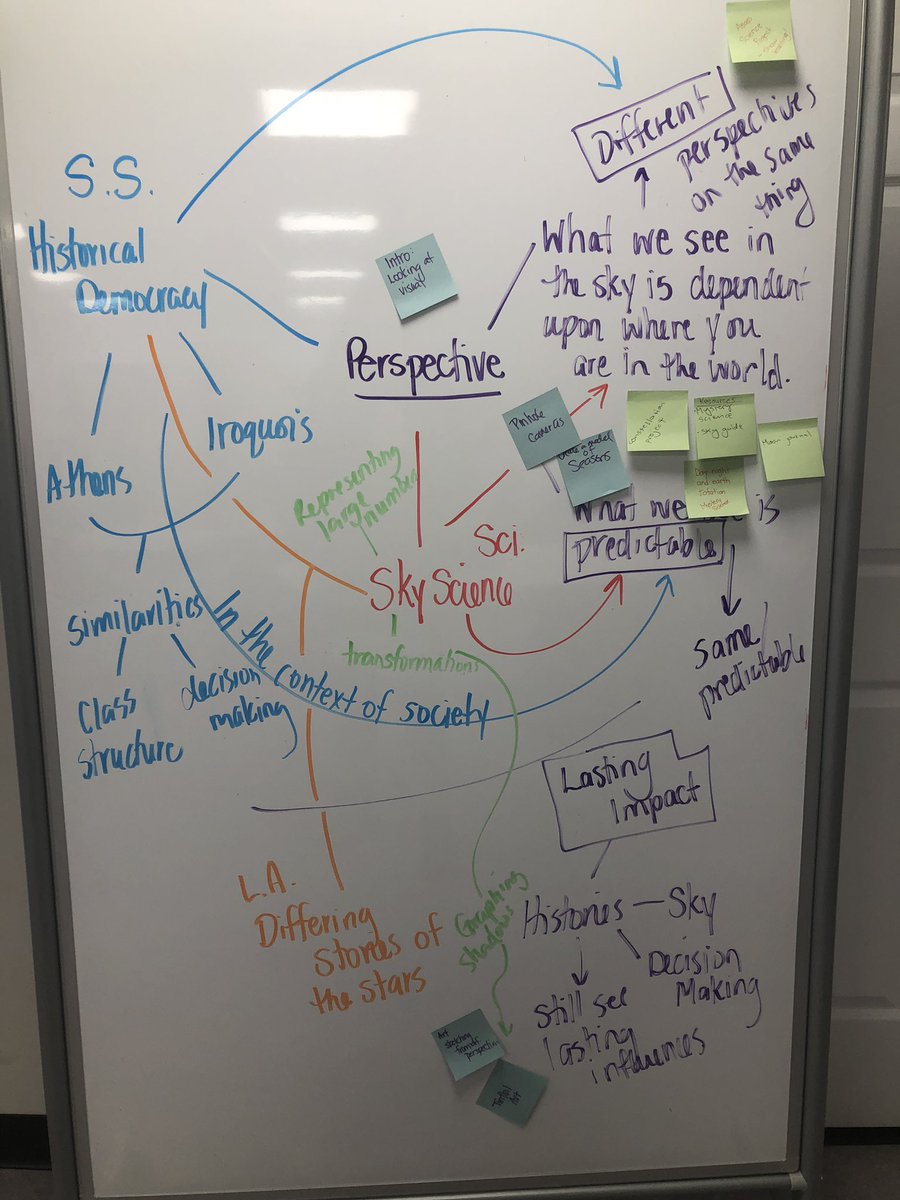 S.S.
Historical
Democracy
Athens
Iroquois
Similarities
Class
structure
decision
making
In the context of society
Intro:
Looking at
visual
Perspective
Different
perspectives
on the same
thing
Science
Project
What we see in
the sky is dependent
upon where you
are in the world.
Pinhole
Cameras
a model
of
Seasons
Constellation
Project
Resources
Mystery
Science
- Sky guide
Moon journal
Day night
and earth
rotation
Mystery
Science
What we is
predictable
same/
predictable
Representing
large
number
Sci.
Sky Science
transformations
Lasting
Impact
Histories — Sky
Decision
Making
Still see
lasting
influences
L.A.
Differing
Stories of
the stars
Graphing
shadows
Art
sketching
from
perspective
Art